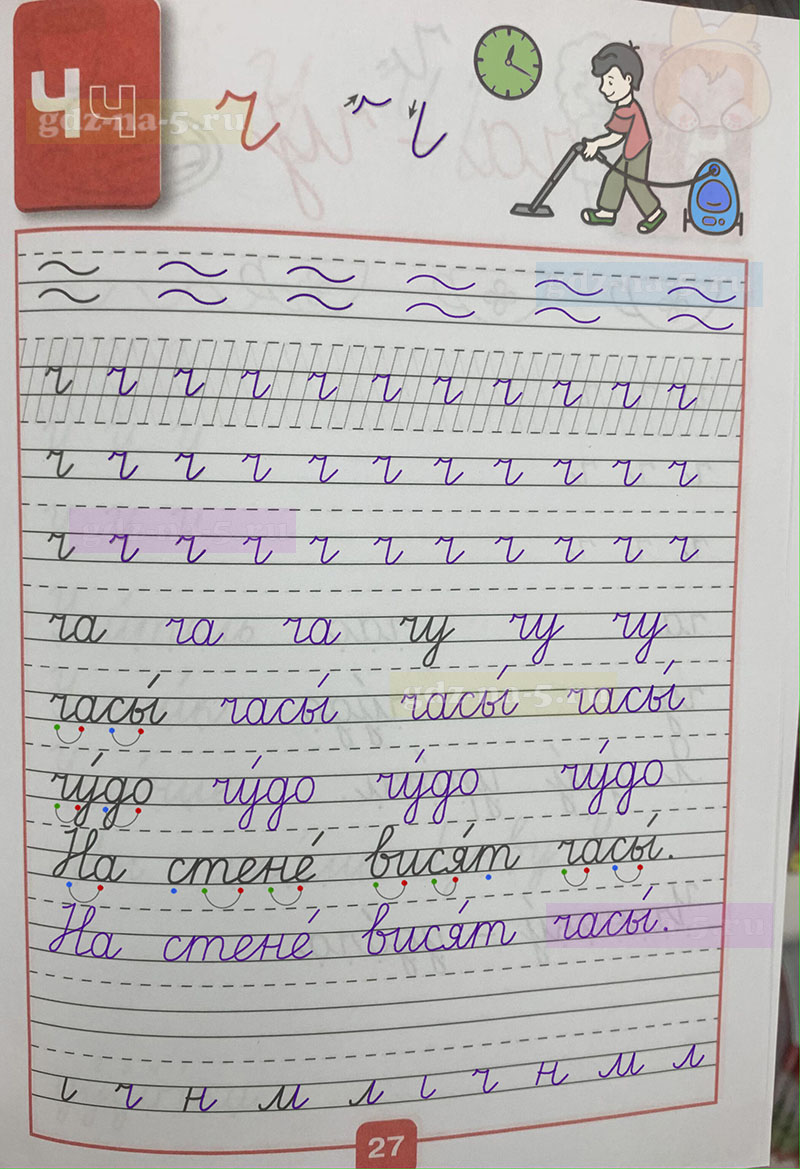 Ч ч ч
ч ч ч ч ч ч ч ч ч ч ч
ч ч ч ч ч ч ч ч ч ч ч
ч ч ч ч ч ч ч ч ч ч ч
ча ча ча чу чу чу
часы́ часы́ часы́ часы́
чу́до чу́до чу́до чу́до
На стене́ вися́т часы́.
На стене́ вися́т часы́.
ι ч н м л ι ч н м л
27
gdz-na-5.ru
gdz-na-5.ru
gdz-na-5.ru
gdz-na-5.ru
gdz-na-5.ru